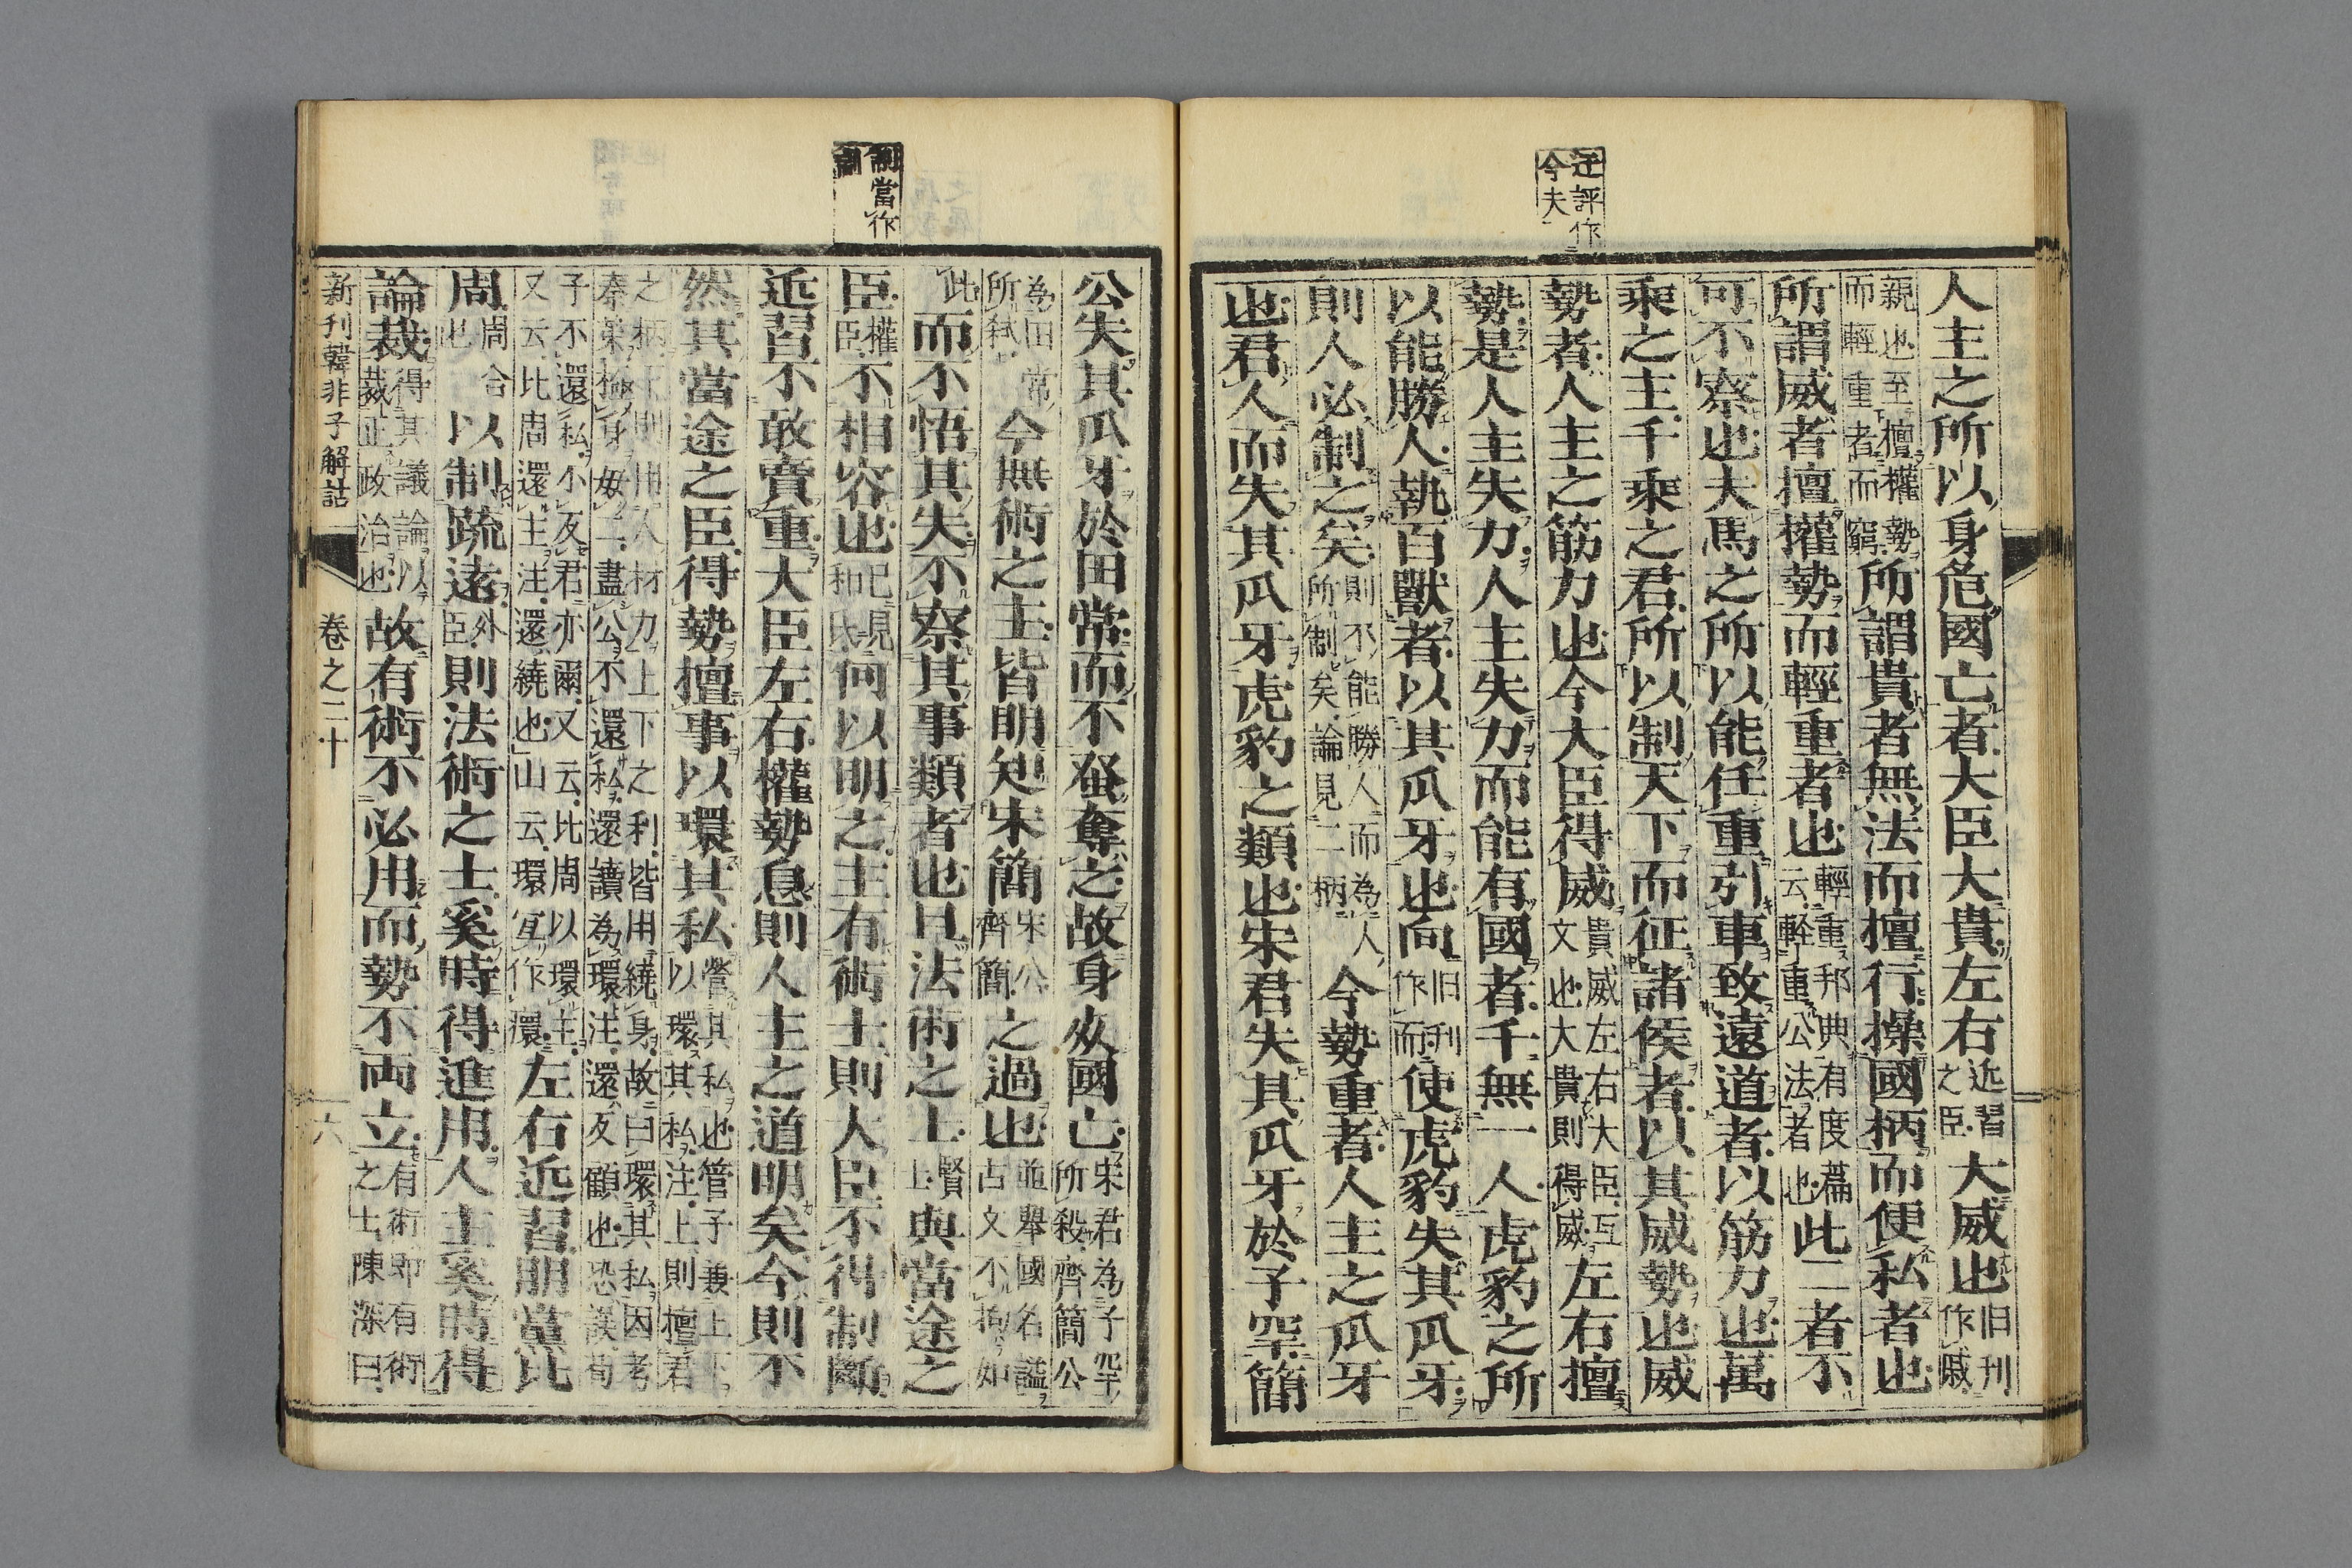 迂評作
今夫
人主之所以身危國亡者大臣大貴左右近習之臣大威也旧刊作戚
親也至擅權勢而輕重者而窮所謂貴者無法而擅行操國柄而便私者也
所謂威者擅權勢而輕重者也輕重邦典有度篇云輕重公法者也此二者不
可不察也夫馬之所以能任重引車致遠道者以筋力也萬
乘之主千乘之君所以制天下而征諸侯者以其威勢也威
勢者人主之筋力也今大臣得威貴威左右大臣互文也大貴則得威左右擅
勢是人主失力人主失力而能有國者千無一人虎豹之所
以能勝人執百獸者以其爪牙也向旧刊作而使虎豹失其爪牙
則人必制之矣則不能勝人而為人所制矣論見二柄今勢重者人主之爪牙
也君人而失其爪牙虎豹之類也宋君失其爪牙於子罕簡
制當作
公失其爪牙於田常而不蚤奪之故身死國亡宋君為子罕所殺齊簡公
為田常所弒今無術之主皆明知宋簡宋公齊簡之過也並舉國名諡古文不拘如
此而不悟其失不察其事類者也且法術之士賢士與當途之
臣權臣不相容也已見和氏何以明之主有術士則大臣不得制斷
近習不敢賣重大臣左右權勢息則人主之道明矣今則不
然其當途之臣得勢擅事以環其私營其私也管子兼上下以環其私注上則擅君
之柄下則用人材力上下之利皆用繞身故曰環其私因考荀
子不還私小反君亦爾又云比周以環主注還反顧也恐誤荀
又云比周還主注還繞也山云環宜作擐左右近習朋黨比
周周合也以制疏遠外臣則法術之士奚時得進用人主奚時得
論裁得其議論以裁正政治也故有術不必用而勢不兩立有術即有術之士陳深曰
新刊韓非子解詁　卷之二十　六